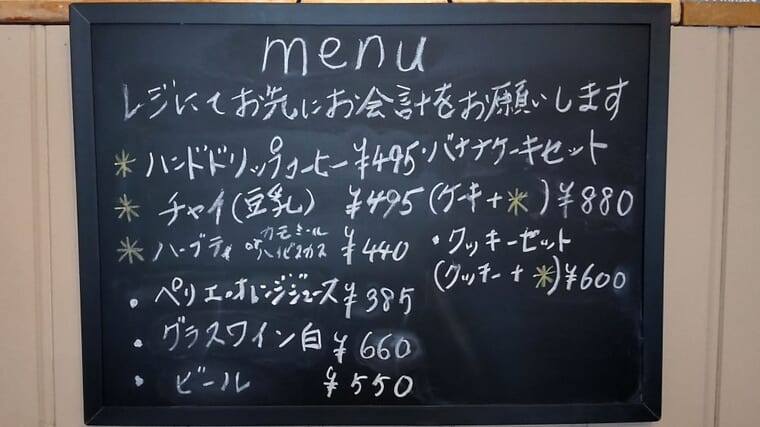 menu
レジにてお先にお会計をお願いします
* ハンドドリップコーヒー ¥495
* チャイ(豆乳) ¥495
* ハーブティ カモミール or ハイビスカス ¥440
・ペリエ・オレンジジュース ¥385
・グラスワイン白 ¥660
・ビール ¥550
・バナナケーキセット
(ケーキ+*) ¥880
・クッキーセット
(クッキー+*) ¥600